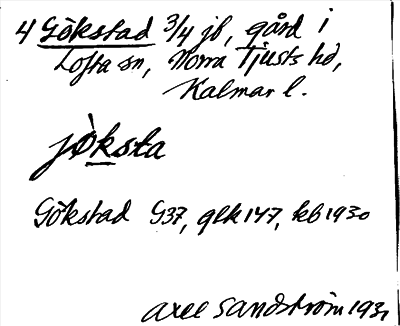 4 Gökstad 3/4 jb, gård i
Lofta sn, Norra Tjusts hd,
Kalmar l.
jø̀ksta
Gökstad G37, glk 147, kb 1930
Axel Sandström 1931